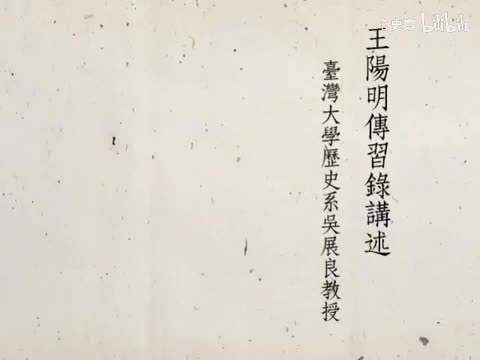 王陽明傳習錄講述
臺灣大學歷史系吳展良教授
bilibili